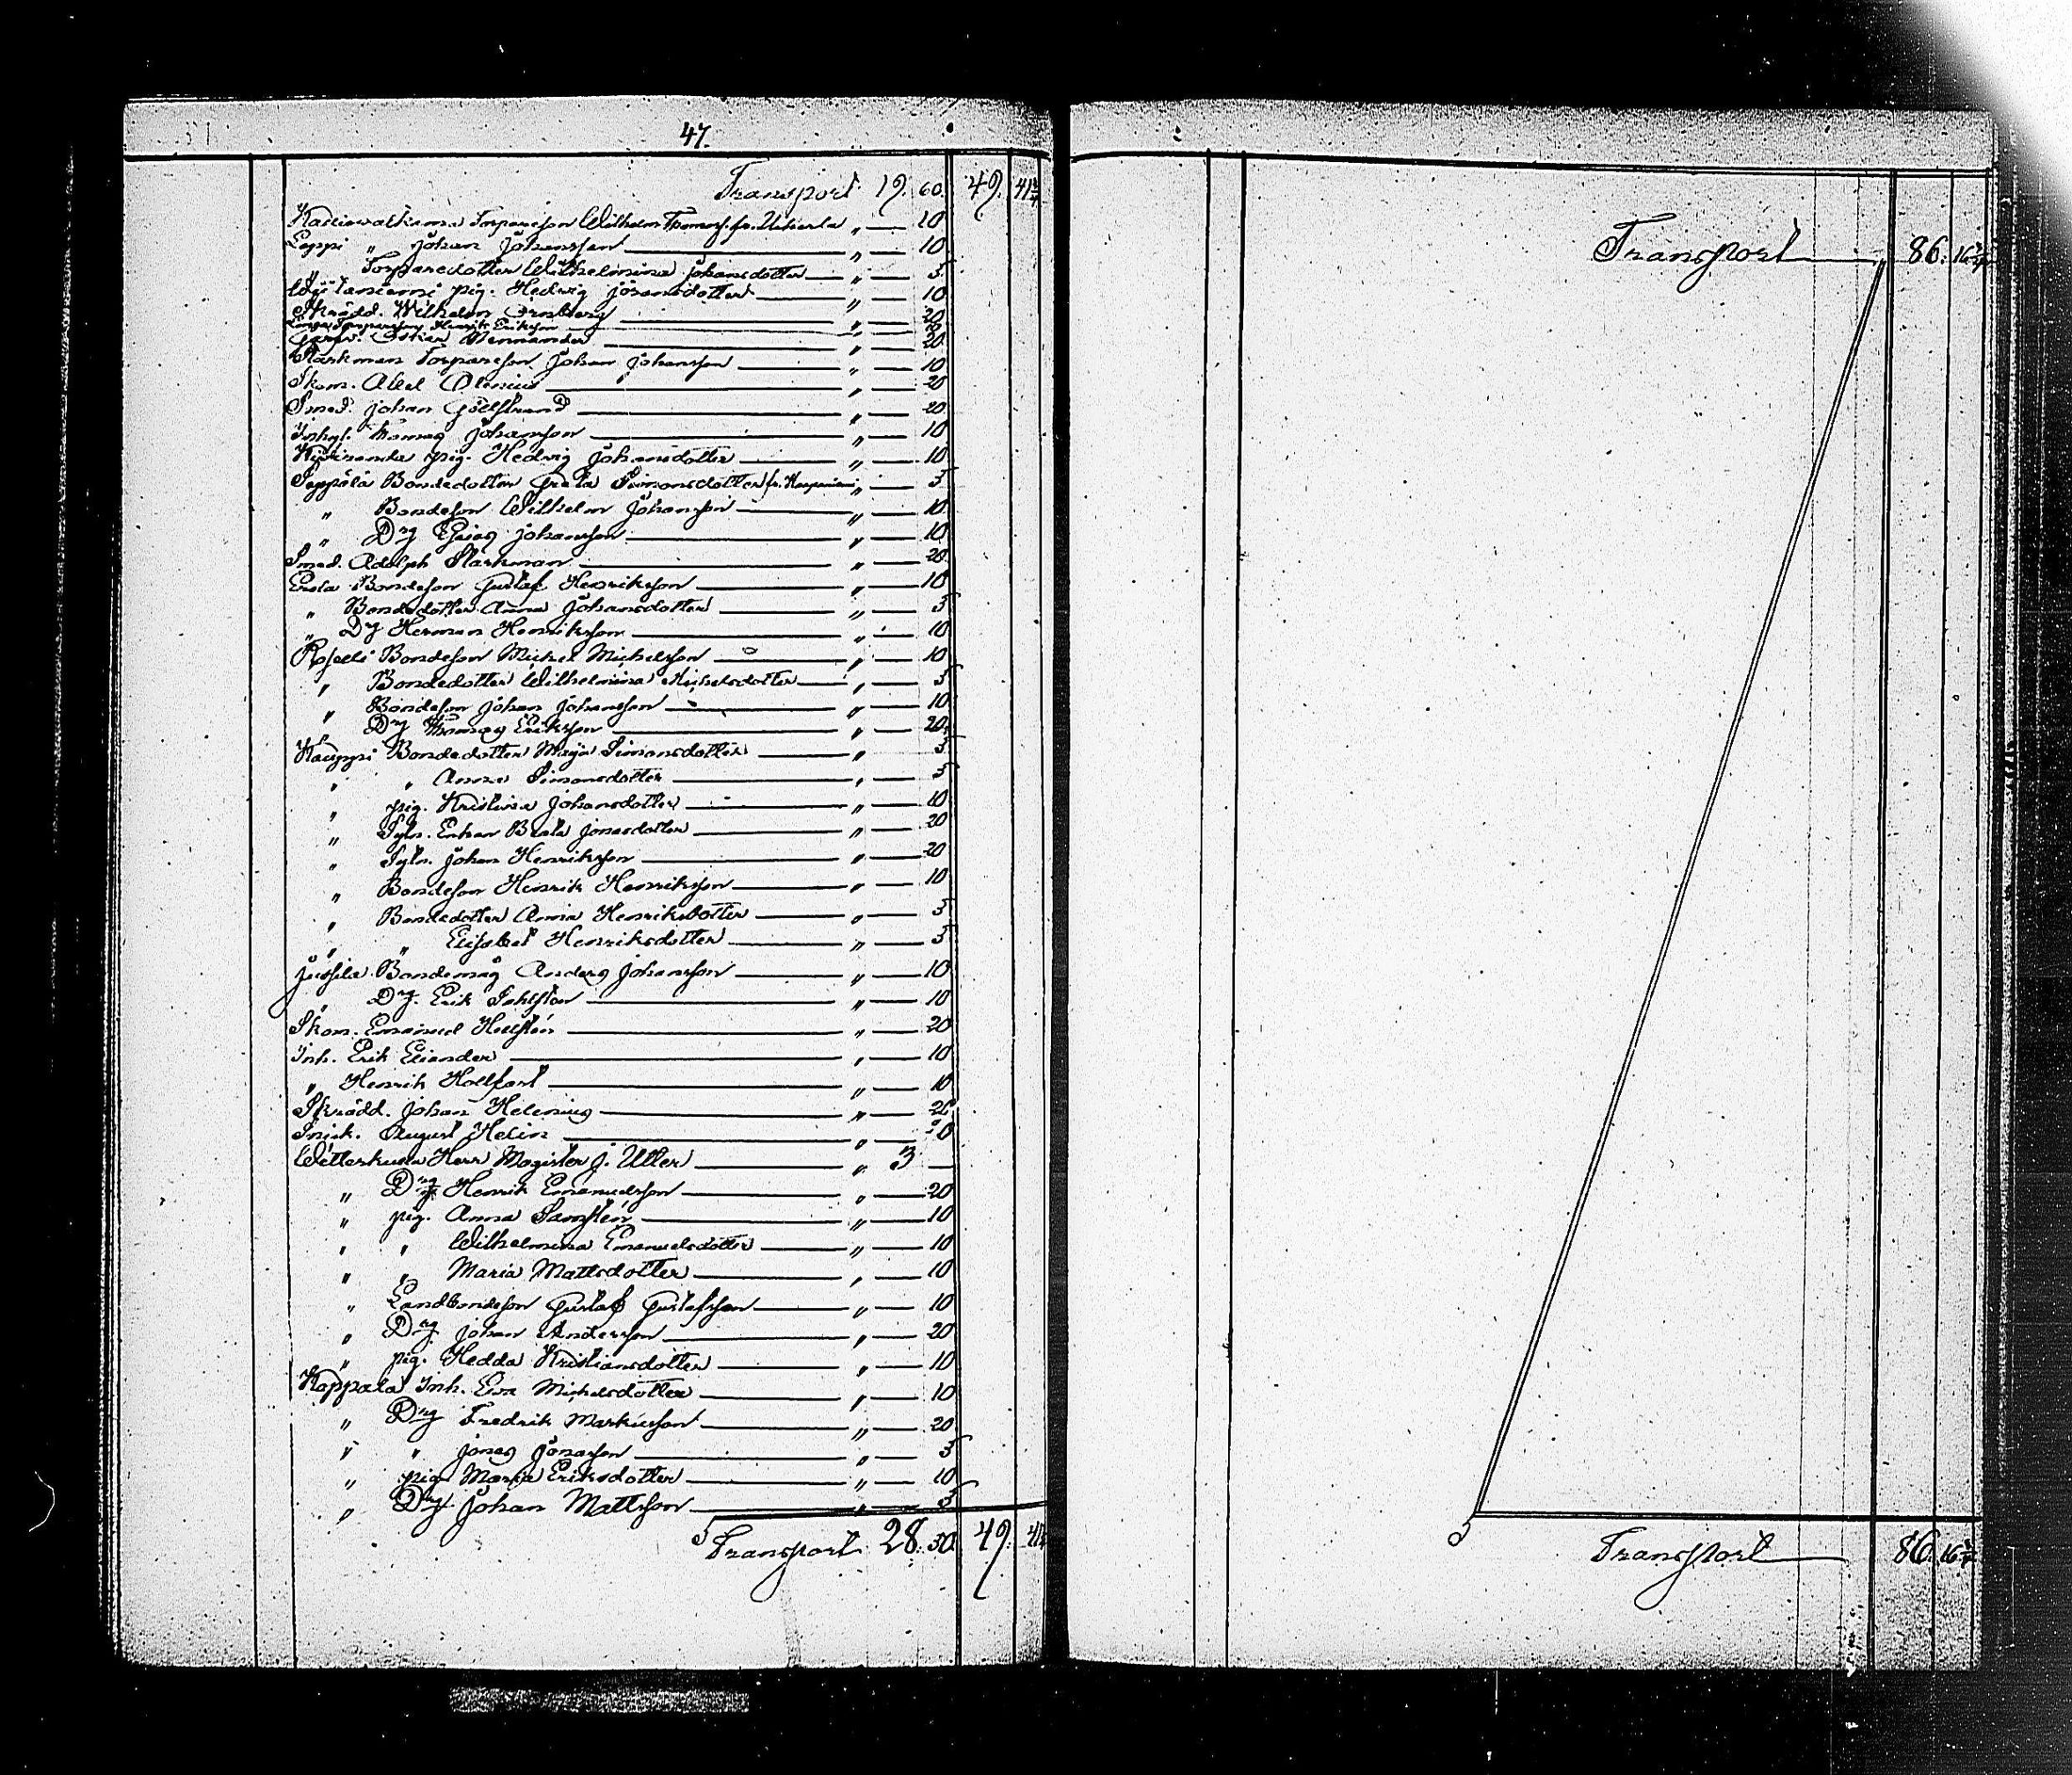 47.
Transport 19. 60. 49. 41
Torpareson Wilhelm " — 10
Leppi " Johan Johansson — " — 10
Torparedotter Wilhelmina Johansdotter — " — 5
pig. Hedvig Johansdotter — " — 10
Skrädd. Wilhelm — " — 20
Henrik Eriksson — "
Garfv. Oskar Mennander — " — 20
Starkman Torpareson Johan Johansson — " — 10
Skom. Abel — " — 20
Smed. Johan — " — 20
Inhys. Thomas Johansson — " — 10
pig. Hedvig Johansdotter — " — 10
Seppälä Bondedotter Greta Simonsdotter fr. " — 5
" Bondeson Wilhelm Johansson — " — 10
" Dng Johansson — " — 10
Smed. Adolph Starkman — " — 20
Bondeson Gustaf Henriksson — " — 10
" Bondedotter Anna Johansdotter — " — 5
" Dng Herman Henriksson — " — 10
Bondeson Mickel Michelsson — " — 10
" Bondedotter Wilhelmina Michelsdotter — " — 5
" Bondeson Johan Johansson — " — 10
" Dng Thomas Eriksson — " — 20
Kauppi Bondedotter Maja Simonsdotter — " — 5
" " Anna Simonsdotter — " — 5
" pig. Kristina Johansdotter — " — 10
" Sytn. Enkan Beata Jonasdotter — " — 20
" Sytn. Johan Henriksson — " — 20
" Bondeson Henrik Henriksson — " — 10
" Bondedotter Anna Henriksdotter — " — 5
" " Elisabet Henriksdotter — " — 5
Jussila Bondemåg Anders Johansson — " — 10
" Dng. Erik — " — 10
Skom. Emanuel Hellstén — " — 20
Inh. Erik Eliander — " — 10
" Henrik — " — 10
Skrädd. Johan Helenius — " — 20
Snick. August Helin — " — 20
Herr Magister J. — " 3 —
" Dng Henrik Emanuelsson — " — 20
" pig. Anna — " — 10
" " Wilhelmina Emanuelsdotter — " — 10
" " Maria Mattsdotter — " — 10
" Landbondeson Gustaf Gustafsson — " — 10
" Dng Johan Andersson — " — 20
" pig. Hedda Kristiansdotter — " — 10
Inh. Eva Michelsdotter — " — 10
" Dng Fredrik Markusson — " — 20
" " Jonas Jonasson — " — 5
" pig. Maria Eriksdotter — " — 10
" Dng Johan Mattsson — " — 5
Transport 28. 50. 49. 41
Transport — 86. 16
Transport — 86. 16